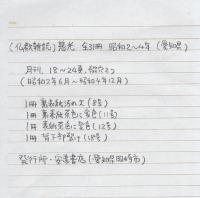 (仏教雑誌) 慈光 全31冊 昭和2~4年 (愛知県)
月刊、18~24頁、紐穴2つ
(昭和2年6月~昭和4年12月)
1冊 裏表紙汚れ大 (8号)
1冊 裏表紙茶色に変色 (11号)
1冊 表紙茶色に変色 (12号)
1冊 背下部裂け (18号)
発行所・安遠書店 (愛知県岡崎市)